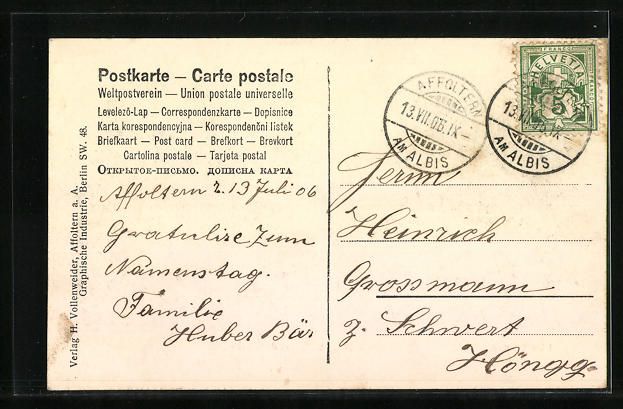 Postkarte — Carte postale
Weltpostverein — Union postale universelle
Levelező-Lap — Correspondenzkarte — Dopisnice
Karta korespondencyjna — Korespondenční listek
Briefkaart — Post card — Brefkort — Brevkort
Cartolina postale — Tarjeta postal
Открытое-письмо. дописна карта
Affoltern 2. 13 Juli 06
Gratulire zum
Namenstag.
Familie
Huber Bär
Verlag H. Vollenweider, Affoltern a. A.
Graphische Industrie, Berlin SW. 48.
AFFOLTERN
13.VII.06.IX-
AM ALBIS
HELVETIA
5
13.VII.
IX-
AM ALBIS
Herrn
Heinrich
Grossmann
z. Schwert
Höngg